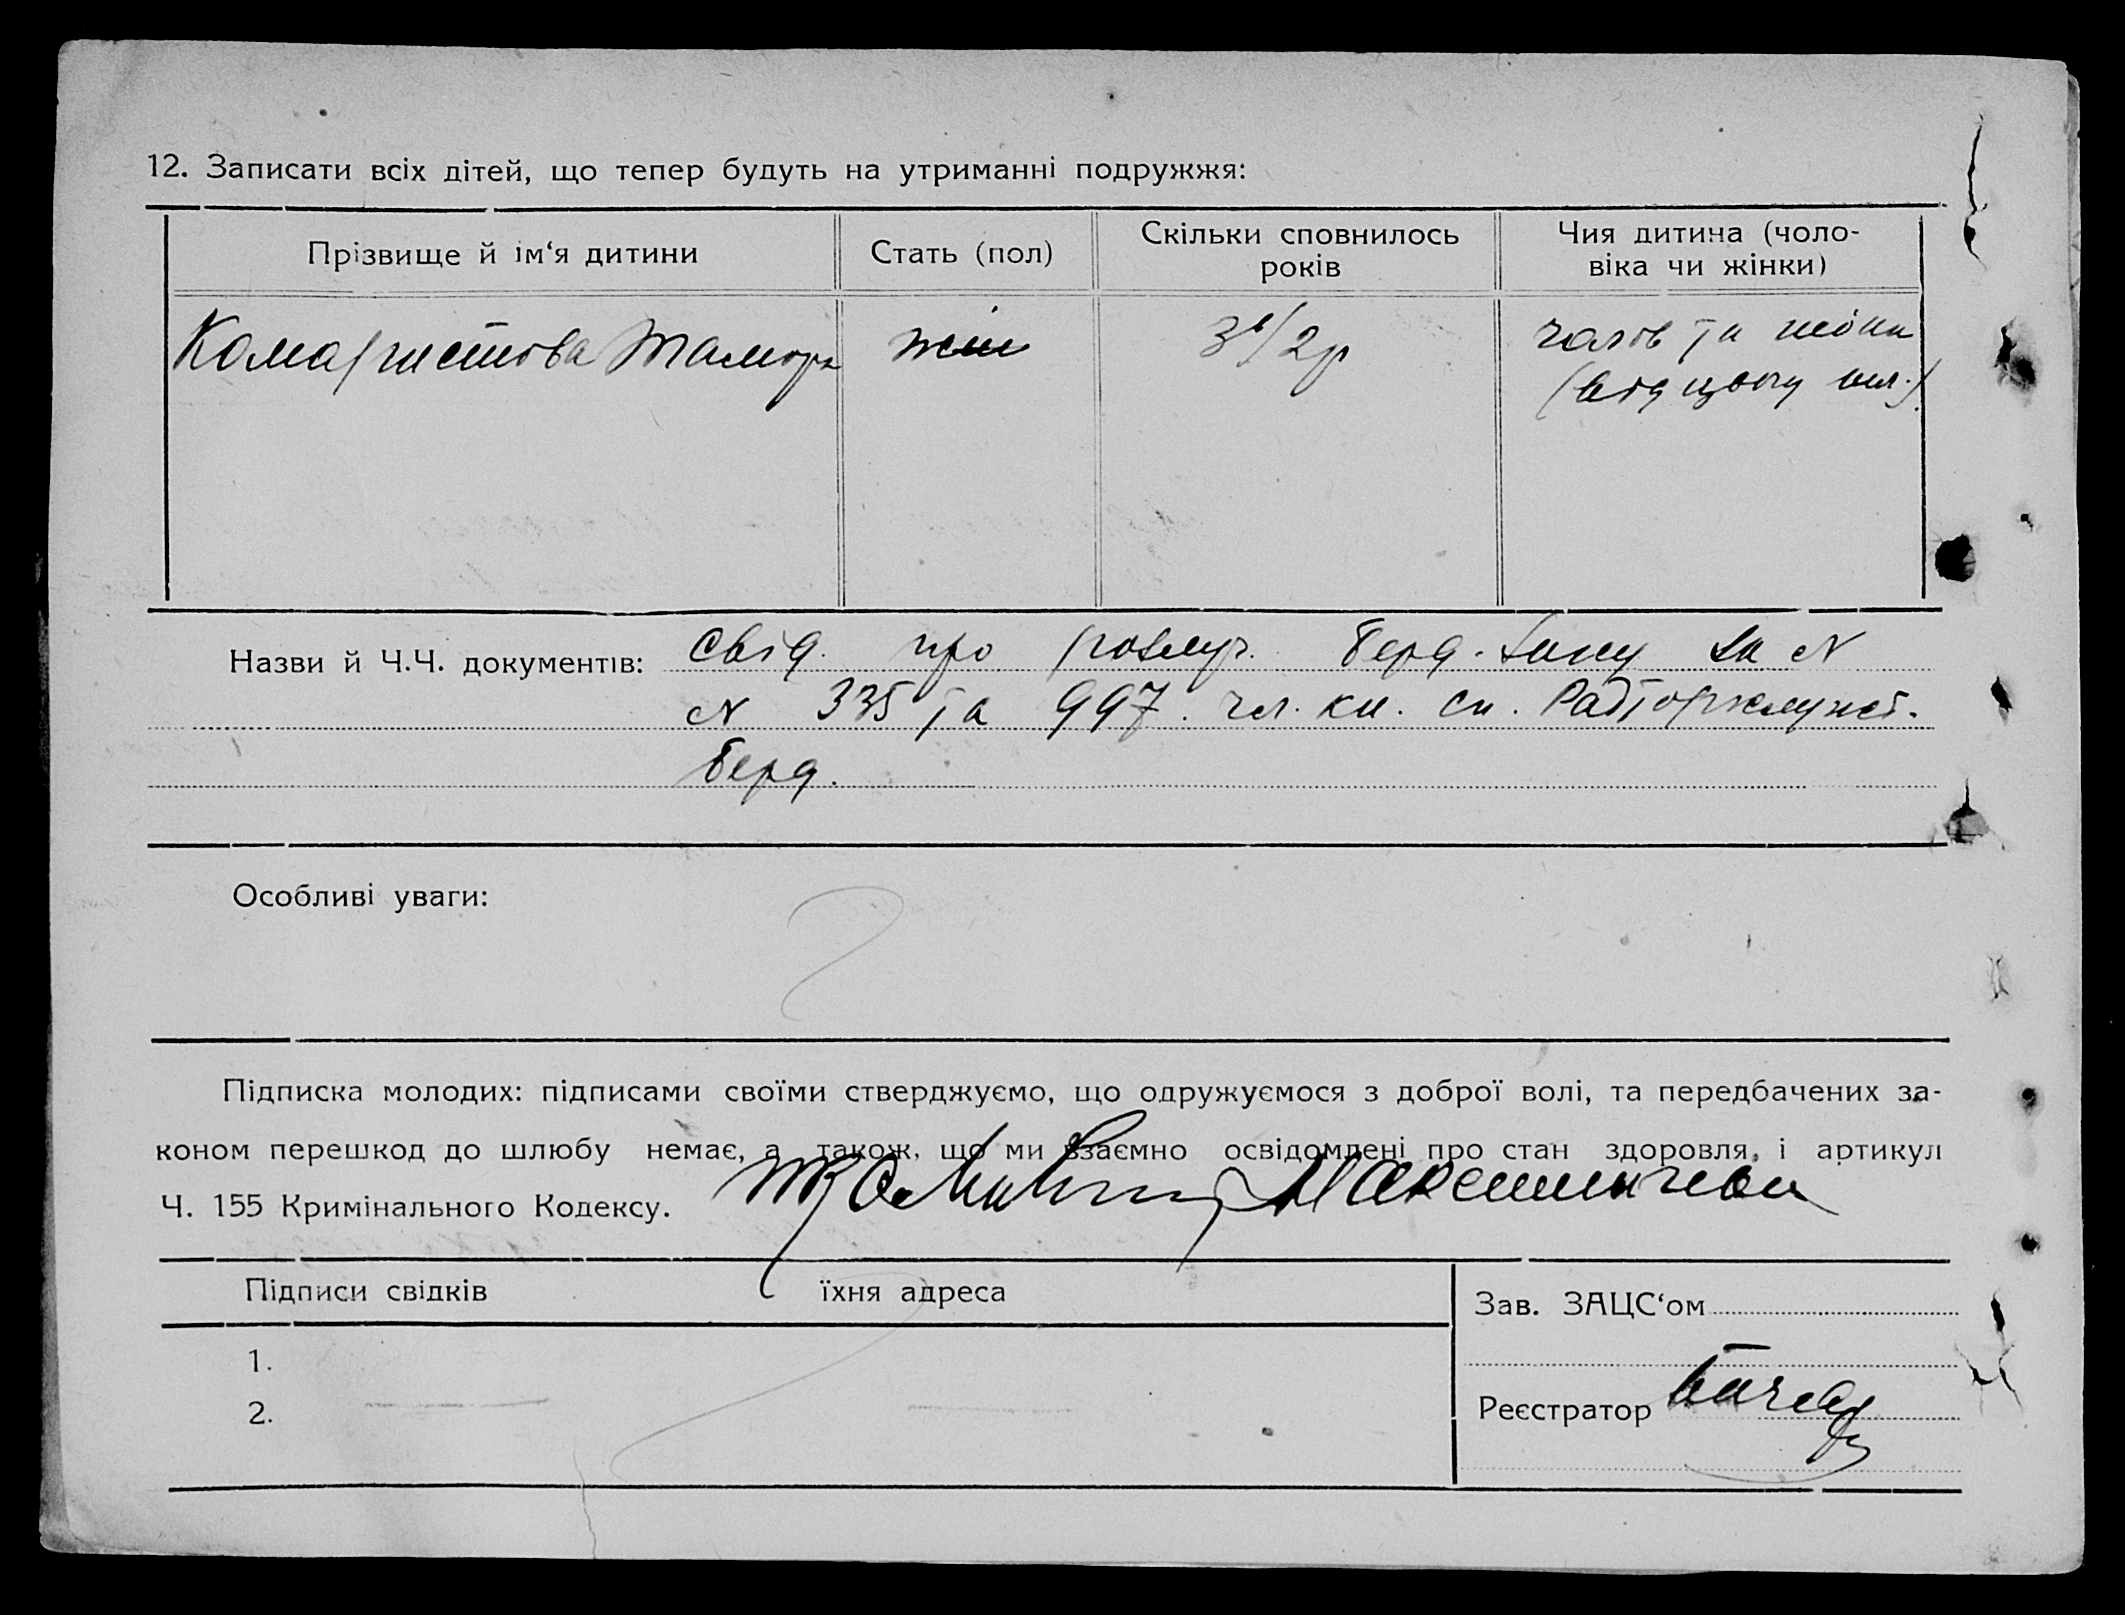 12. Записати всіх дітей, що тепер будуть на утриманні подружжя:
Прізвище й ім‘я дитини
Стать (пол)
Скільки сповнилось
років
Чия дитина (чоло-
віка чи жінки)
Тамара
жін
3 1/2 р
чолов та жінки
(від цього шл.)
Назви й Ч.Ч. документів: Свід. про розлуч. Берд. Загсу за N
N 335 та 997. чл. кн. сп. Радторгслужб.
Берд.
Особливі уваги:
Підписка молодих: підписами своїми стверджуємо, що одружуємося з доброї волі, та передбачених за-
коном перешкод до шлюбу немає, а також, що ми взаємно освідомлені про стан здоровля, і артикул
Ч. 155 Кримінального Кодексу.
Підписи свідків
їхня адреса
Зав. ЗАЦС‘ом
1.
2.
Реєстратор